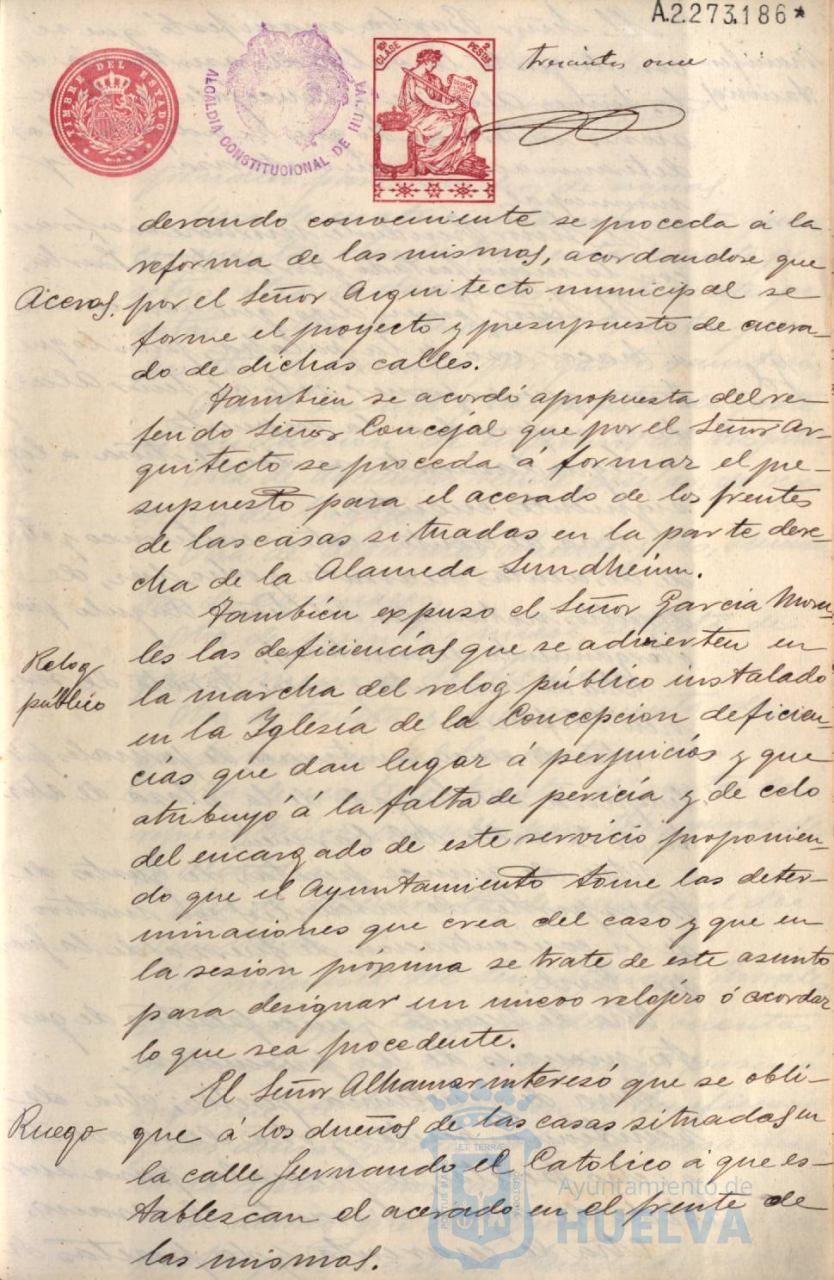 A.2.273.186*
TIMBRE DEL ESTADO
ALCALDIA CONSTITUCIONAL DE HUELVA
CLASE
2 PESETAS
trescientos once
derando conveniente se proceda á la
reforma de las mismas, acordandose que
Aceras. por el Señor Arquitecto municipal se
forme el proyecto y presupuesto de acera-
do de dichas calles.
Tambien se acordó apropuesta del re-
ferido Señor Concejal que por el Señor Ar-
quitecto se proceda á formar el pre-
supuesto para el acerado de los frentes
de las casas situadas en la parte dere-
cha de la Alameda Sundheim.
Tambien expuso el Señor Garcia Mora-
les las deficiencias que se advierten en
Relog
público
la marcha del relog público instalado
en la Iglesia de la Concepcion deficien-
cias que dan lugar á perjuicios y que
atribuyó á la falta de pericia y de celo
del encargado de este servicio proponien-
do que el Ayuntamiento tome las deter-
minaciones que crea del caso y que en
la sesion próxima se trate de este asunto
para designar un nuevo relojero ó acordar
lo que sea procedente.
El Señor Alhamar interesó que se obli-
Ruego que á los dueños de las casas situadas en
la calle Fernando el Catolico á que es-
tablescan el acerado en el frente de
las mismas.
Ayuntamiento de
HUELVA